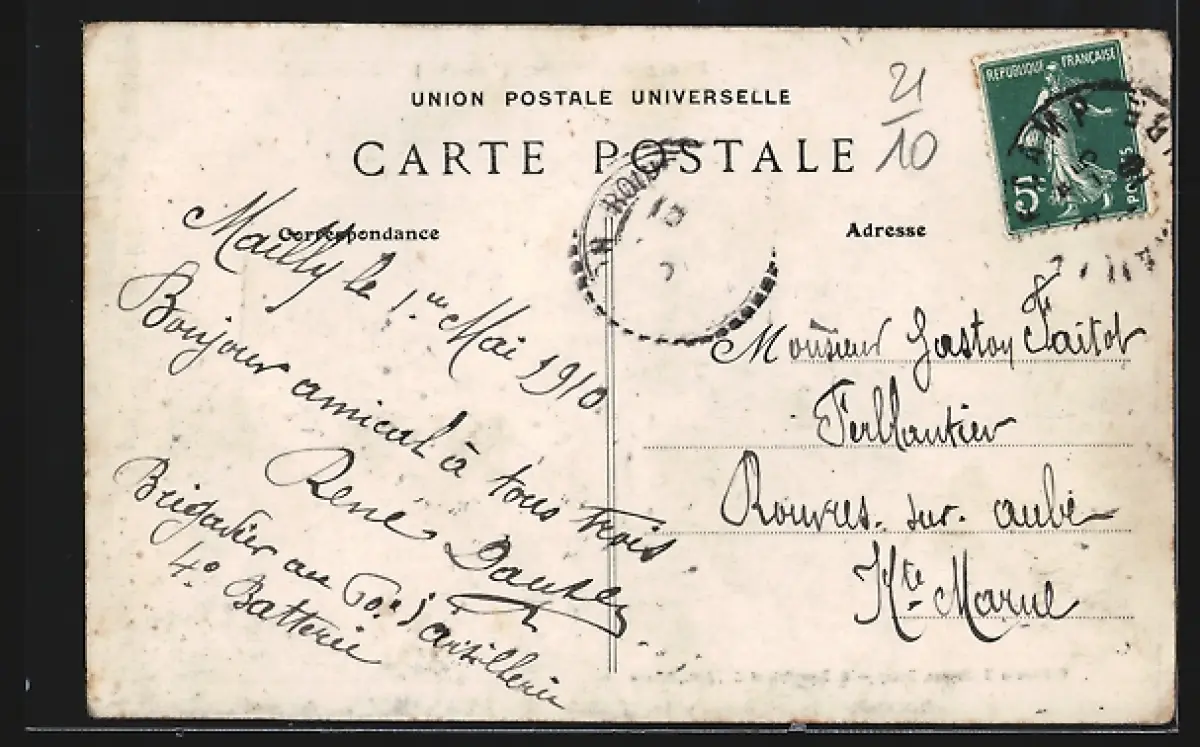 UNION POSTALE UNIVERSELLE
CARTE POSTALE
21
10
REPUBLIQUE FRANÇAISE
5c
POSTES
CAMP
Correspondance
Adresse
Mailly le 1er Mai 1910
Bonjour amical à tous trois
René
Brigadier au d'artillerie
4e Batterie
Monsieur Gaston Faitot
Ferblantier
Rouvres-sur-aube
Hte Marne